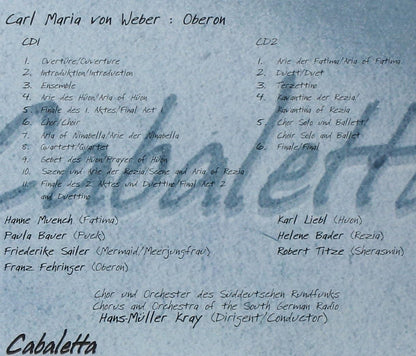 Carl Maria von Weber : Oberon
CD1
1. Overture/Ouverture
2. Introduktion/Introduction
3. Ensemble
4. Arie des Hüon/Aria of Hüon
5. Finale des 1. Aktes/Final Act 1
6. Chor/Choir
7. Aria of Ninabella/Arie der Ninabella
8. Quartett/Quartet
9. Gebet des Hüon/Prayer of Hüon
10. Szene und Arie der Rezia/Scene and Aria of Rezia
11. Finale des 2. Aktes und Duettino/Final Act 2
and Duettino
CD2
1. Arie der Fatima/Aria of Fatima
2. Duett/Duet
3. Terzettino
4. Kavantine der Rezia/
Kavantina of Rezia
5. Chor Solo und Ballett/
Choir Solo and Ballet
6. Finale/Final
Cabaletta
Hanne Muench (Fatima)
Paula Bauer (Puck)
Friederike Sailer (Mermaid/Meerjungfrau)
Franz Fehringer (Oberon)
Karl Liebl (Huon)
Helene Bader (Rezia)
Robert Titze (Sherasmin)
Chor und Orchester des Süddeutschen Rundfunks
Chorus and Orchestra of the South German Radio
Hans-Müller Kray (Dirigent/Conductor)
Cabaletta